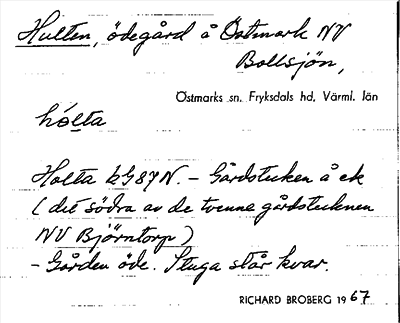 Hulten, ödegård å Östmark NV
Bollsjön,
Östmarks sn. Fryksdals hd, Värml. län
hólta
Holta bG87N. - Gårdstecken å ek
(det södra av de tvenne gårdstecknen
NV Björntorp)
- Gården öde. Stuga står kvar.
RICHARD BROBERG 1967